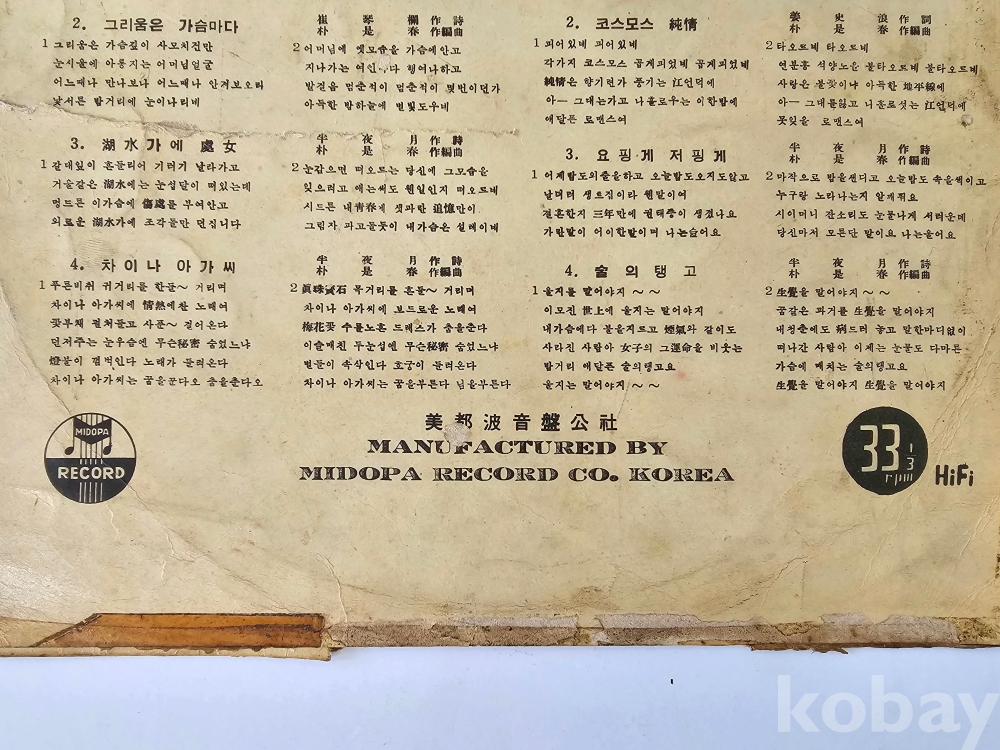 2. 그리움은 가슴마다
崔琴欄 作詩
朴是春 作編曲
1 그리움은 가슴깊이 사모치건만
눈시울에 아롱지는 어머님얼굴
어느때나 만나보나 어느때나 안겨보오리
낯서른 밤거리에 눈이나리네
2 어머님에 옛모습을 가슴에안고
지나가는 여인 다 행여나하고
발걸음 멈춘적이 멈춘적이 몇번이던가
아득한 밤하늘에 별빛도우네
3. 湖水가에 處女
半夜月 作詩
朴是春 作編曲
1 갈대잎이 흔들리어 기러기 날라가고
거울같은 湖水에는 눈섭달이 떠있는데
멍드른 이가슴에 傷處를 부여안고
외로운 湖水가에 조각돌만 던집니다
2 눈감으면 떠오르는 당신에 그모습을
잊으려고 애는써도 웬일인지 떠오르네
시드른 내靑春에 샛파란 追憶만이
그림자 파고들듯이 내가슴은 설레이네
4. 차이나 아가씨
半夜月 作詩
朴是春 作編曲
1 푸른비취 귀거리를 한들~ 거리며
차이나 아가씨에 情熱에찬 노래여
꽃부채 펼처들고 사뿐~ 걸어온다
던저주는 눈우슴엔 무슨秘密 숨었느냐
燈불이 껌벅인다 노래가 들려온다
차이나 아가씨는 꿈을꾼다오 춤을춘다오
2 眞珠寶石 목거리를 흔들~ 거리며
차이나 아가씨에 보드로운 노래여
梅花꽃 수를노혼 드레스가 춤을춘다
이슬매친 두눈섭엔 무슨秘密 숨었느냐
별들이 속삭인다 호궁이 들려온다
차이나 아가씨는 꿈을부른다 님을부른다
2. 코스모스 純情
姜史浪 作詞
朴是春 作編曲
1 피어있네 피어있네
각가지 코스모스 곱게피었네 곱게피었네
純情은 향기런가 풍기는 江언덕에
아— 그대는가고 나홀로우는 이한밤에
애달른 로맨스여
2 타오르네 타오르네
연분홍 석양노을 불타오르네 불타오르네
사랑은 불꽃이냐 아득한 地平線에
아— 그대를잃고 나홀로섯는 江언덕에
못잊을 로맨스여
3. 요핑게 저핑게
半夜月 作詩
朴是春 作編曲
1 어제밤도외출을하고 오늘밤도오지도않고
날마더 생트집이라 웬말이여
결혼한지 三年만에 권태증이 생겼나요
가란말이 어이한말이며 나는싫어요
2 마작으로 밤을샌다고 오늘밤도 속을썩이고
누구랑 노라나는지 알게뭐요
시이머니 잔소리도 눈물나게 서러운데
당신마저 모른단 말이요 나는울어요
4. 술의탱고
半夜月 作詩
朴是春 作編曲
1 울지를 말어야지 ~ ~
이모진 世上에 울지는 말어야지
내가슴에다 불을지르고 煙氣와 같이도
사라진 사람아 女子의 그運命을 비웃는
밤거리 애달픈 술의탱고요
울지는 말어야지 ~ ~
2 生覺을 말어야지 ~ ~
꿈같은 과거를 生覺을 말어야지
내청춘에도 病드려 놓고 말한마디없이
떠나간 사람아 이제는 눈물도 다마른
가슴에 메치는 술의탱고요
生覺을 말어야지 生覺을 말어야지
美都波音盤公社
MANUFACTURED BY
MIDOPA RECORD CO. KOREA
MIDOPA
RECORD
33 1/3
rpm
HiFi
kobay